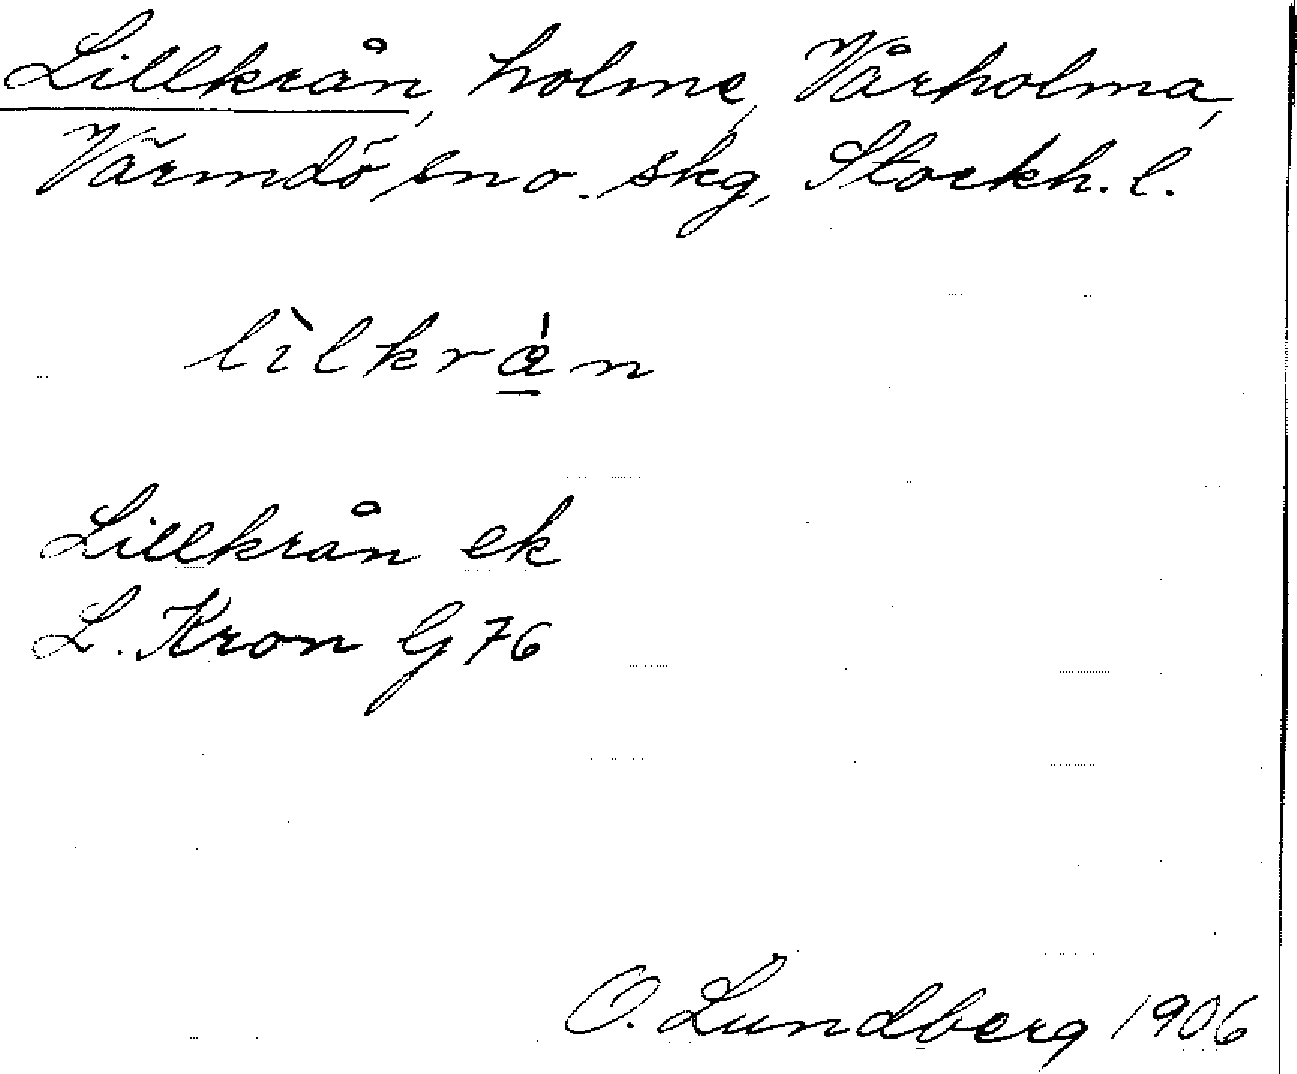 Lillkrån, holme, Vårholma,
Värmdö sn o. skg, Stockh. l.
lìlkrǻ̲n
Lillkrån ek
L. Kron G 76
O. Lundberg 1906